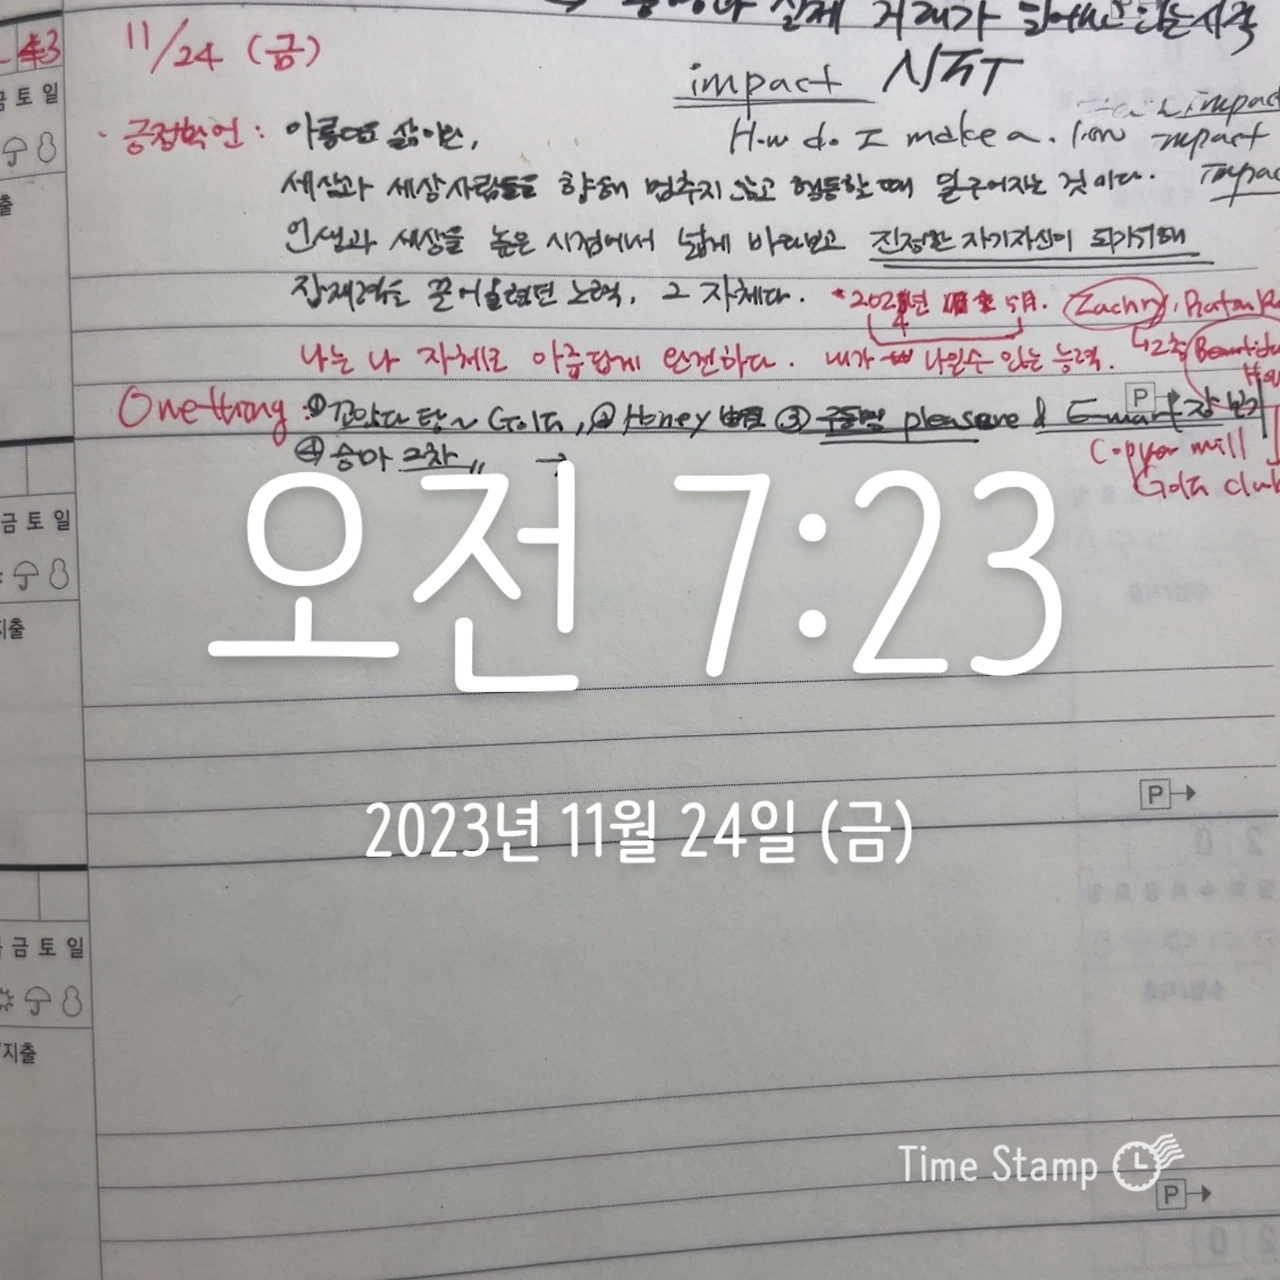 실제 거래가
11/24 (금)
impact NFT
impact
· 긍정확언 : 아름다운 삶이란,
How do I make a. 1on impact
impact
세상과 세상사람들을 향해 멈추지 않고 행동할 때 일구어지는 것이다.
인생과 세상을 높은 시점에서 넓게 바라보고 진정한 자기자신이 되기위해
잠재력을 끌어올렸던 노력, 그 자체다.
*2024년 5月. Zachry,
나는 나 자체로 아름답게 완전하다. 내가 나일수 있는 능력.
↳2층 Beautiful
One thing : ① Golf, ② Honey ③ pleasure & E-mart 장보기
④ 승마 2차 →
Copper mill
Golf club
금 토 일
지출
금 토 일
지출
금 토 일
지출
P→
P→
P→
오전 7:23
2023년 11월 24일 (금)
Time Stamp